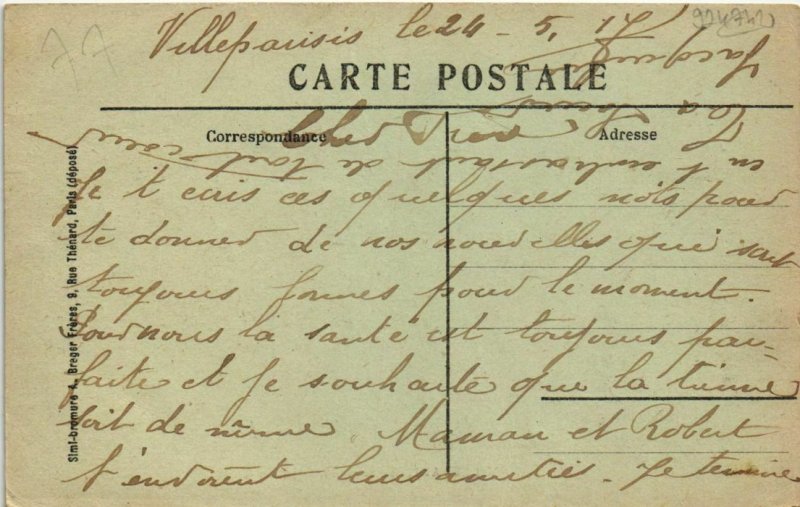 77
924742
Villeparisis le 24 - 5. 17
CARTE POSTALE
Correspondance
Adresse
Cher
Je t ecris ces quelques mots pour
te donner de nos nouvelles qui sont
toujours bonnes pour le moment.
Pour nous la santé est toujours par-
faite et je souhaite que la tienne
soit de même. Maman et Robert
t'envoient leurs amitiés. Je termine
en t embrassant de tout cœur
Ta
Jacqueline
Simi-bromure A. Breger Frères, 9, Rue Thénard, Paris (déposé)